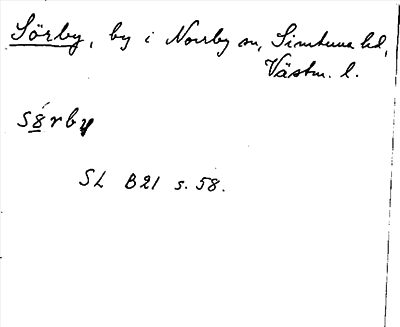 Sörby, by i Norrby sn, Simtuna hd,
Västm. l.
s8́rby
SL B21 s. 58.